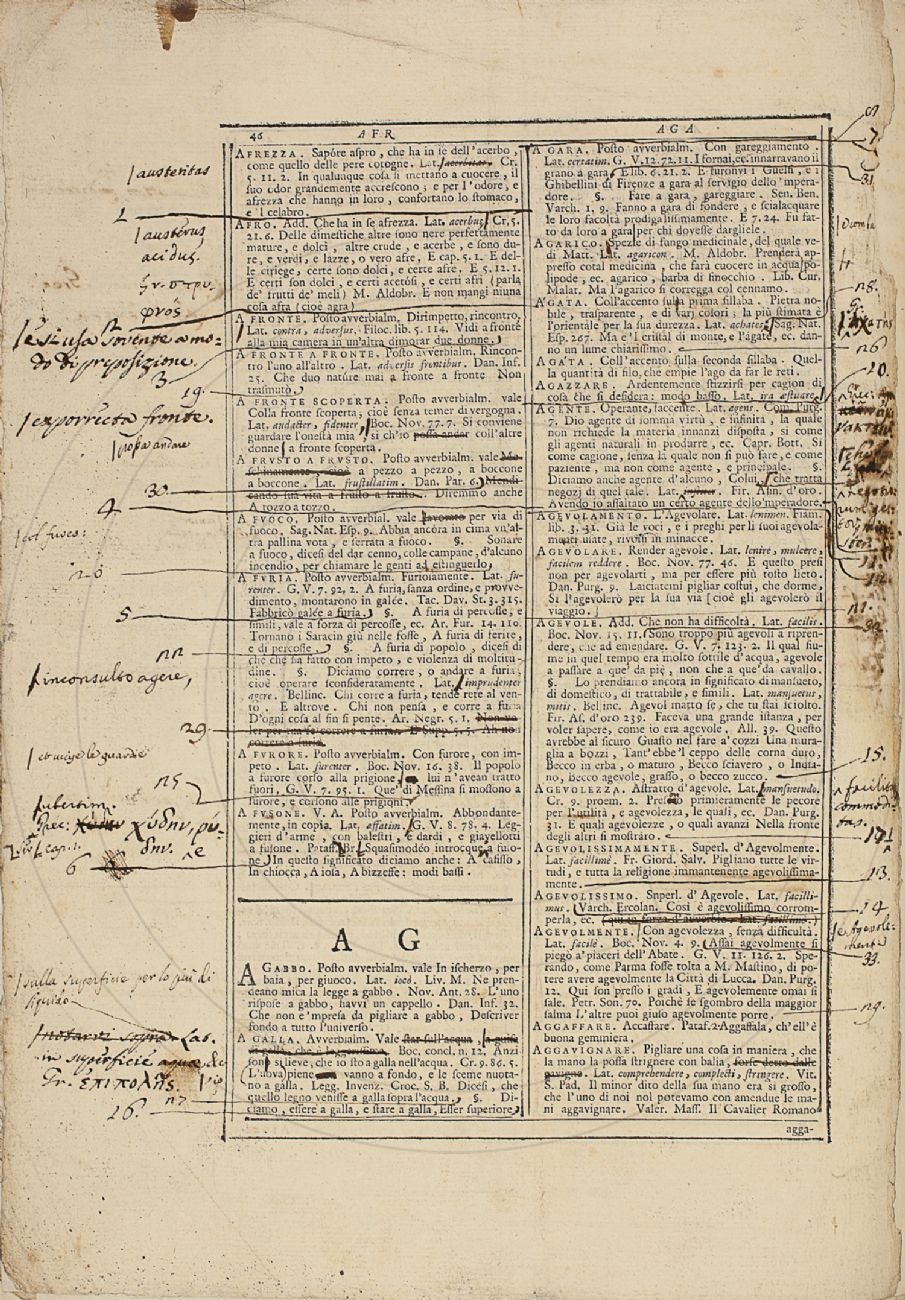 46 AFR
AFREZZA. Sapóre aspro, che ha in se dell'acerbo,
come quello delle pere cotogne. Lat. acerbitas. Cr.
5. 11. 2. In qualunque cosa si mettano a cuocere, il
suo odor grandemente accrescono; e per l'odore, e
afrezza che hanno in loro, confortano lo stomaco,
e 'l celabro.
AFRO. Add. Che ha in se afrezza. Lat. acerbus. Cr. 5.
21. 6. Delle dimestiche altre sono nere perfettamente
mature, e dolci, altre crude, e acerbe, e sono du-
re, e verdi, e lazze, o vero afre. E cap. 5. 1. E del-
le ciriege, certe sono dolci, e certe afre. E 5. 12. 1.
E certi son dolci, e certi acetosi, e certi afri (parla
de' frutti de' meli) M. Aldobr. E non mangi niuna
cosa afra (cioè agra)
A FRONTE. Posto avverbialm. Dirimpetto, rincontro,
Lat. contra, adversus. Filoc. lib. 5. 114. Vidi a fronte
alla mia camera in un'altra dimorar due donne.
A FRONTE A FRONTE. Posto avverbialm. Rincon-
tro l'uno all'altro. Lat. adversis frontibus. Dan. Inf.
25. Che duo nature mai a fronte a fronte Non
trasmutò.
A FRONTE SCOPERTA. Posto avverbialm. vale
Colla fronte scoperta, cioè senza temer di vergogna.
Lat. audacter, fidenter. Boc. Nov. 77. 7. Si conviene
guardare l'onestà mia, si ch'io possa andar coll'altre
donne a fronte scoperta.
A FRUSTO A FRUSTO. Posto avverbialm. vale
a pezzo a pezzo, a boccone
a boccone. Lat. frustulatim. Dan. Par. 6. Mendi-
cando sua vita a frusto a frusto. Diremmo anche
A tozzo a tozzo.
A FUOCO. Posto avverbial. vale lavorato per via di
fuoco. Sag. Nat. Esp. 9. Abbia ancora in cima un'al-
tra pallina vota, e serrata a fuoco. §. Sonare
a fuoco, dicesi del dar cenno, colle campane, d'alcuno
incendio, per chiamare le genti ad estinguerlo.
A FURIA. Posto avverbialm. Furiosamente. Lat. fu-
renter. G. V. 7. 92. 2. A furia, senza ordine, e provve-
dimento, montarono in galée. Tac. Dav. St. 3. 315.
Fabbricò galée a furia. §. A furia di percosse, e
simili, vale a forza di percosse, ec. Ar. Fur. 14. 110.
Tornano i Saracin giù nelle fosse, A furia di ferite,
e di percosse. §. A furia di popolo, dicesi di
ciò che sia fatto con impeto, e violenza di moltitu-
dine. §. Diciamo correre, o andare a furia,
cioè operare sconsideratamente, Lat. imprudenter
agere. Bellinc. Chi corre a furia, tende rete al ven-
to. E altrove. Chi non pensa, e corre a furia
D'ogni cosa al fin si pente. Ar. Negr. 5. 1. Non vo-
ler per ira ir correre a furia. E Supp. 5. 5. Ah non
correre a furia.
A FURORE. Posto avverbialm. Con furore, con im-
peto. Lat. furenter. Boc. Nov. 16. 38. Il popolo
a furore corso alla prigione, lui n'avean tratto
fuori, G. V. 7. 95. 1. Que' di Messina si mossono a
furore, e corsono alle prigioni.
A FUSONE. V. A. Posto avverbialm. Abbondante-
mente, in copia. Lat. affatim. G. V. 8. 78. 4. Leg-
gieri d'arme, con balestri, e dardi, e giavellotti
a fusone. Pataff. Br. L. Squasimodéo introcque, a fuso-
ne. In questo significato diciamo anche: A cafisso,
In chiocca, A josa, A bizzeffe: modi bassi.
A G
A GABBO. Posto avverbialm. vale In ischerzo, per
baia, per giuoco. Lat. ioco. Liv. M. Ne pren-
deano mica la legge a gabbo. Nov. Ant. 28. L'uno
rispose a gabbo, havvi un cappello. Dan. Inf. 32.
Che non e'mpresa da pigliare a gabbo, Descriver
fondo a tutto l'universo.
A GALLA. Avverbialm. Vale star sull'acqua, a guisa
di galla, che è leggerissima. Boc. concl. n. 12. Anzi
son sì lieve, che io sto a galla nell'acqua. Cr. 9. 86. 5.
L'uova piene vanno a fondo, e le sceme nuota-
no a galla. Legg. Invenz. Croc. S. B. Dicesi, che
quello legno venisse a galla sopra l'acqua. §. Di-
ciamo, essere a galla, e stare a galla, Esser superiore,
AGA
A GARA. Posto avverbialm. Con gareggiamento.
Lat. certatim. G. V. 12. 72. 11. I fornai, ec. innarravano il
grano a gara, E lib. 6. 21. 2. E furonvi i Guelfi, e i
Ghibellini di Firenze a gara al servigio dello 'mpera-
dore. §. Fare a gara, gareggiare. Sen. Ben.
Varch. 1. 9. Fanno a gara di fondere, e scialacquare
le loro facoltà prodigalissimamente. E 7. 24. Fu fat-
to da loro a gara per chi dovesse dargliele.
AGARICO. Spezie di fungo medicinale, del quale ve-
di Matt. Lat. agaricon. M. Aldobr. Prenderà ap-
presso cotal medicina, che farà cuocere in acqua, po-
lipode, ec. agarico, barba di finocchio. Lib. Cur.
Malat. Ma l'agarico si corregga col cennamo.
AGATA. Coll'accento sulla prima sillaba. Pietra no-
bile, trasparente, e di varj colori; la più stimata è
l'orientale per la sua durezza. Lat. achates. Sag. Nat.
Esp. 267. Ma e 'l cristal di monte, e l'agate, ec. dan-
no un lume chiarissimo.
AGATA. Coll'accento sulla seconda sillaba. Quel-
la quantità di filo, che empie l'ago da far le reti.
AGAZZARE. Ardentemente stizzirsi per cagion di
cosa che si desidera: modo basso. Lat. ira æstuare.
AGENTE. Operante, faccente. Lat. agens. Com. Purg.
7. Dio agente di somma virtù, e infinita, la quale
non richiede la materia innanzi disposta, sì come
gli agenti naturali in produrre, ec. Capr. Bott. Sì
come cagione, senza la quale non si può fare, e come
paziente, ma non come agente, e principale. §.
Diciamo anche agente d'alcuno, Colui, che tratta
negozj di quel tale. Lat. Fir. Asin. d'oro.
Avendo io assaltato un certo agente dello'mperadore.
AGEVOLAMENTO. L'Agevolare. Lat. lenimen. Fiam.
lib. 3. 41. Già le voci, e i preghi per li suoi agevola-
menti usate, rivolsi in minacce.
AGEVOLARE. Render agevole. Lat. lenire, mulcere,
facilem reddere. Boc. Nov. 77. 46. E questo presi
non per agevolarti, ma per essere più tosto lieto.
Dan. Purg. 9. Lasciatemi pigliar costui, che dorme,
Sì l'agevolerò per la sua via [cioè gli agevolerò il
viaggio.]
AGEVOLE. Add. Che non ha difficoltà. Lat. facilis.
Boc. Nov. 15. 11. Sono troppo più agevoli a ripren-
dere, che ad emendare. G. V. 7. 123. 2. Il qual fiu-
me in quel tempo era molto sottile d'acqua, agevole
a passare a que' da piè, non che a que' da cavallo.
§. Lo prendiamo ancora in significato di mansueto,
di domestico, di trattabile, e simili. Lat. mansuetus,
mitis. Bellinc. Agevol matto se, che tu stai sciolto.
Fir. As. d'oro 239. Faceva una grande istanza, per
voler sapere, come io era agevole. All. 39. Questo
avrebbe al sicuro Guasto nel fare a' cozzi Una mura-
glia a bozzi, Tant'ebbe 'l ceppo delle corna duro,
Becco in erba, o maturo, Becco sciavero, o Indiano,
no, Becco agevole, grasso, o becco zucco.
AGEVOLEZZA. Astratto d'agevole. Lat. mansuetudo.
Cr. 9. proem. 2. Presono primieramente le pecore
per l'utilità, e agevolezza, le quali, ec. Dan. Purg.
31. E quali agevolezze, o quali avanzi Nella fronte
degli altri si mostraro.
AGEVOLISSIMAMENTE. Superl. d'Agevolmente.
Lat. facillimè. Fr. Giord. Salv. Pigliano tutte le vir-
tudi, e tutta la religione immantenente agevolissima-
mente.
AGEVOLISSIMO. Snperl. d'Agevole. Lat. facilli-
mus. Varch. Ercolan. Così è agevolissimo corrom-
perla, ec. (qui in forza d'avverbio. Lat. facillimè.)
AGEVOLMENTE. Con agevolezza, senza difficultà.
Lat. facilè. Boc. Nov. 4. 9. Assai agevolmente si
piegò a'piaceri dell'Abate. G. V. 11. 126. 2. Spe-
rando, come Parma fosse tolta a M. Mastino, di po-
tere avere agevolmente la Città di Lucca. Dan. Purg.
12. Qui son presso i gradi, E agevolemente omai si
sale. Petr. Son. 70. Poichè se sgombro della maggior
salma L'altre puoi giuso agevolmente porre.
AGGAFFARE. Accaffare. Pataf. 2. Aggaffala, ch'ell'è
buona gemmiera.
AGGAVIGNARE. Pigliare una cosa in maniera, che
la mano la possa strignere con balia, forse detto dalle
gavigne. Lat. comprehendere, complecti, stringere. Vit.
S. Pad. Il minor dito della sua mano era sì grosso,
che l'uno di noi nol potevamo con amendue le ma-
ni aggavignare. Valer. Mass. Il Cavalier Romano
agga-
austeritas
1
austerus
acidus.
Gr. στρυ-
φνός
È si usa sovente a mo-
do di preposizione.
3
19.
exporrecta fronte.
possa andare
30.
4
ad fuoco:
20
5
22
inconsulto agere,
29
25
ubertim.
Grec: χύδην, ρύ-
δην.
6
sulla superficie per lo più di
liquido
Lat.
in superficie aquae,
Gr. ἐπιπολῆς.
27
26.
8
7.
31
28.
26
10.
11.
12.
21.
32
15.
facilitas
commodi-
tas.
17
13.
14
Agevole-
mente
33.
29.